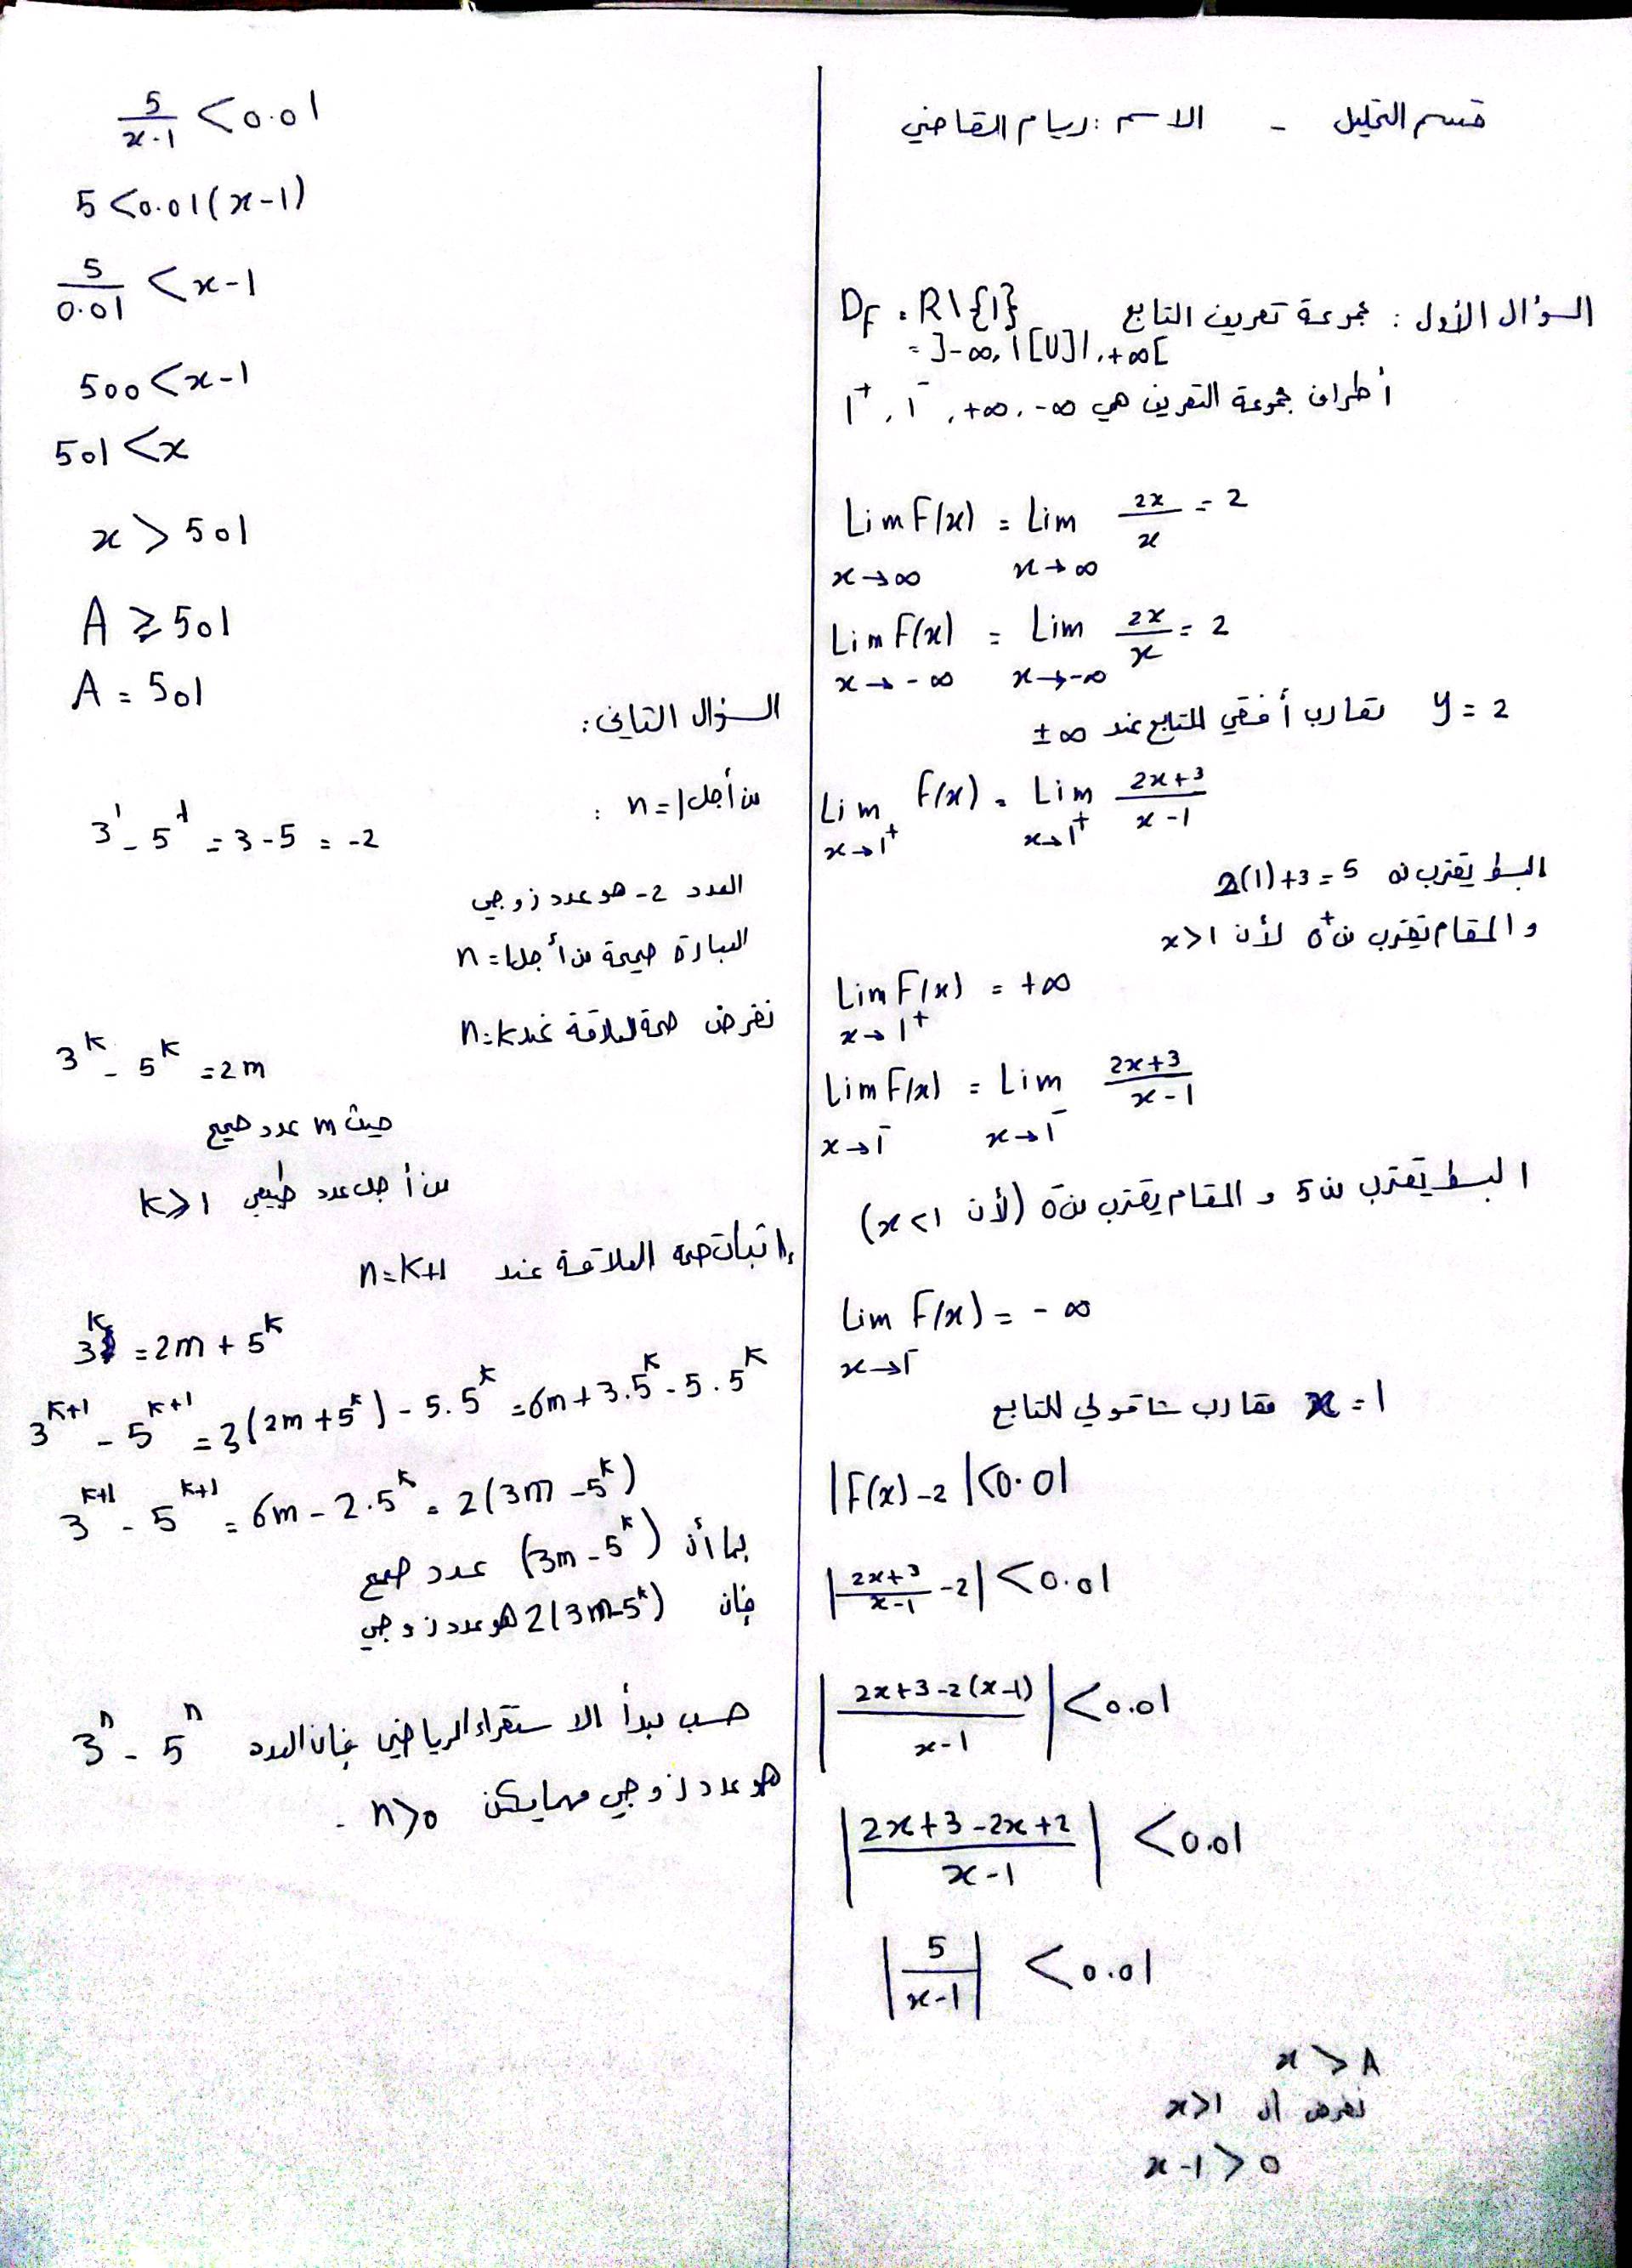 قسم التحليل - الاسم : ريام القاضي
السؤال الأول : مجموعة تعريف التابع D_F = R\{1}
= ]-∞, 1[ U ]1, +∞[
أطراف مجموعة التعريف هي -∞ , +∞ , 1⁻ , 1⁺
Lim F(x) = Lim 2x/x = 2
x→∞ x→∞
Lim F(x) = Lim 2x/x = 2
x→-∞ x→-∞
y = 2 تقارب أفقي للتابع عند ±∞
Lim F(x) = Lim (2x+3)/(x-1)
x→1⁺ x→1⁺
البسط يقترب من 2(1)+3=5
والمقام يقترب من 0⁺ لأن x>1
Lim F(x) = +∞
x→1⁺
Lim F(x) = Lim (2x+3)/(x-1)
x→1⁻ x→1⁻
البسط يقترب من 5 و المقام يقترب من 0⁻ (لأن x<1)
Lim F(x) = -∞
x→1⁻
x = 1 مقارب شاقولي للتابع
|F(x)-2|<0.01
|(2x+3)/(x-1) -2|<0.01
|(2x+3-2(x-1))/(x-1)|<0.01
|(2x+3-2x+2)/(x-1)| <0.01
|5/(x-1)| <0.01
x > A
نفرض أن x>1
x-1>0
5/(x-1) <0.01
5<0.01(x-1)
5/0.01 <x-1
500<x-1
501<x
x>501
A ≥ 501
A = 501
السؤال الثاني :
من أجل n=1 :
3¹ - 5¹ = 3-5 = -2
العدد -2 هو عدد زوجي
العبارة صحيحة من أجل n=1
نفرض صحة العلاقة عند n=k
3^k - 5^k = 2m
حيث m عدد صحيح
من أجل عدد طبيعي k≥1
إثبات صحة العلاقة عند n=k+1
3^k = 2m + 5^k
3^(k+1) - 5^(k+1) = 3(2m+5^k) - 5.5^k = 6m+3.5^k - 5.5^k
3^(k+1) - 5^(k+1) = 6m - 2.5^k = 2(3m-5^k)
بما أن (3m-5^k) عدد صحيح
فإن 2(3m-5^k) هو عدد زوجي
حسب مبدأ الاستقراء الرياضي فإن العدد 3^n - 5^n
هو عدد زوجي مهما يكن n>0 .